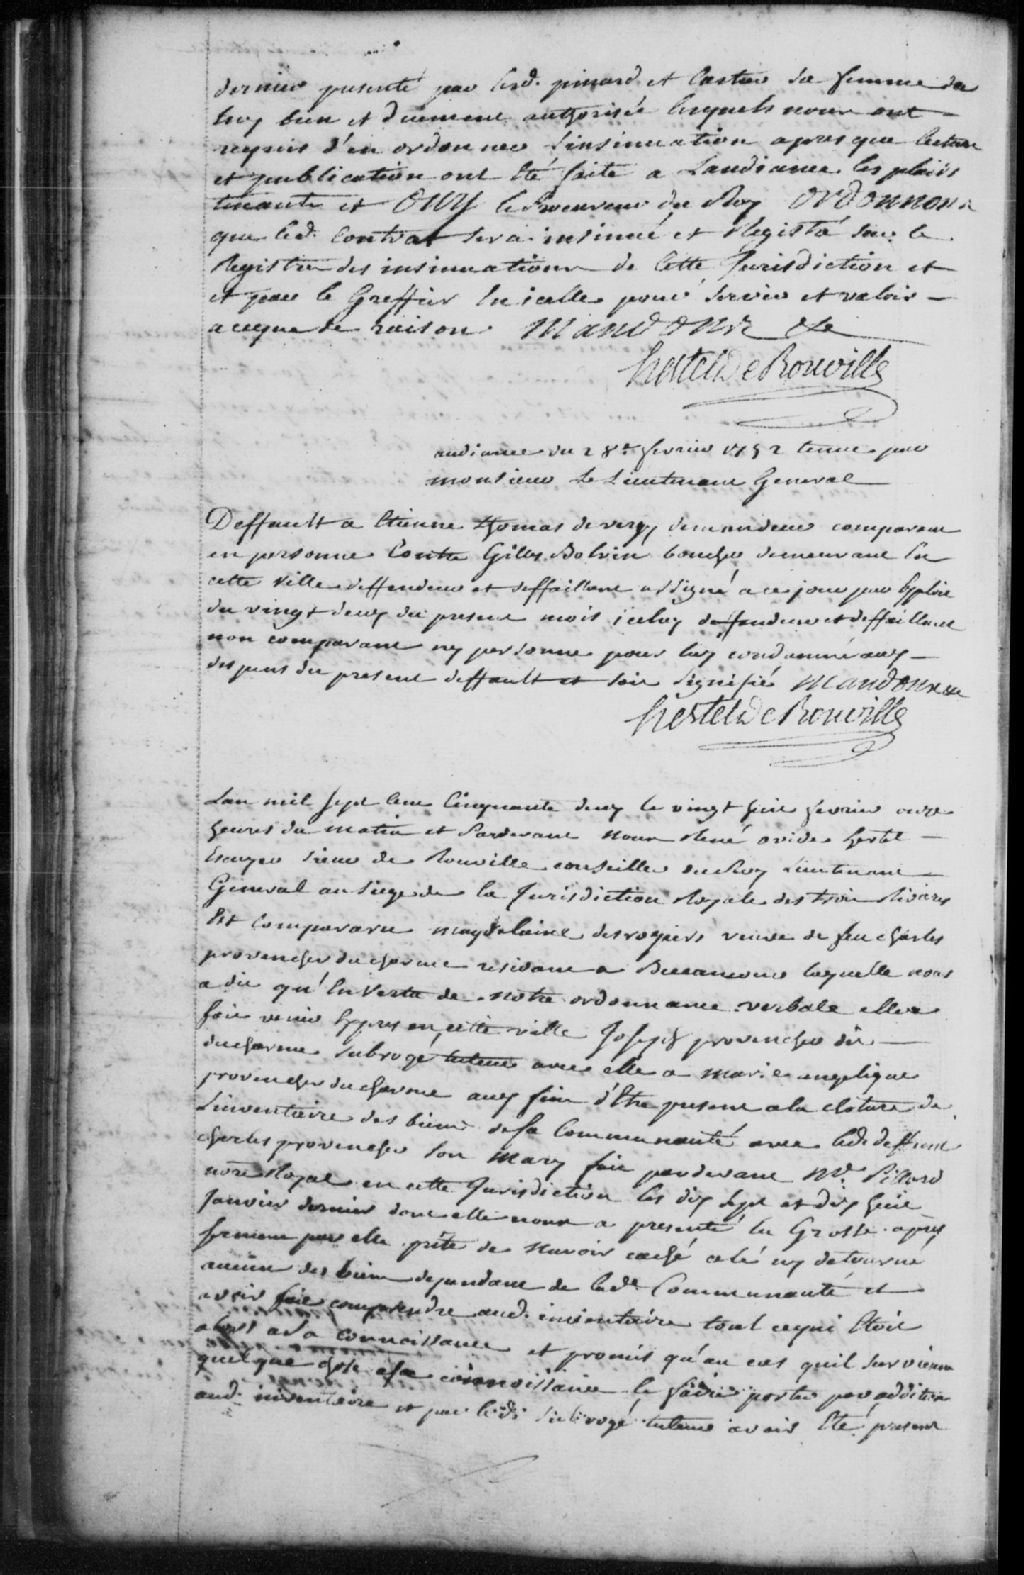 dernier presenté par led. pinard et Castier sa femme de
luy bien et duement authorisée lesquels nous ont
requis d'en ordonner Linsinuation apres que lecture
et publication ont été faite a Laudiance les plaids
tenants et OUY le Procureur du Roy ORDONNONS
que led. Contrat sera insinué et Registré sur le
Registre des insinuations de Cette Jurisdiction et
et par le Greffier dicelle pour servir et valoir
aceque de raison. MANDONS &c
hertel De Rouville
audiance du 28e. fevrier 1752 tenue par
monsieur Le Lieutenant General
Deffault a Etienne thomas devergy demandeur comparant
en personne Contre Gilles Bolvin boucher demeurant En
cette ville deffendeur et deffaillant assigné a ce jour par Exploit
du vingt deux du present mois iceluy deffendeur et deffaillant
non comparant ny personne pour luy condamné aux
despens du present deffault et soit signifié MANDONS &c
hertel De Rouville
Lan mil sept Cent Cinquante deux le vingt huit fevrier onze
heures du matin et Pardevant nous René ovide hertel
Escuyer sieur de Rouville conseiller du Roy Lieutenant
General au siege de la Jurisdiction Royale des trois Rivieres
Est Comparant magdelaine desrosiers veuve de feu charles
provencher ducharme residant a Becancour laquelle nous
a dit qu'En Vertu de notre ordonnance verbale elle a
fait venir Expres en cette ville Joseph provencher dit
ducharme subrogé tuteur avec elle a marie angelique
provencher ducharme aux fin d'Etre present a la cloture de
Linventaire des biens de sa Communauté avec led. deffunt
charles provencher son mary fait pardevant Me. Pillard
nore Royal en cette Jurisdiction les dix sept et dix huit
Janvier dernier dont elle nous a presenté la Grosse apres
serment par elle prêté de navoir caché celé ny detourné
aucun des biens dependant de lade. Communauté et
avoir fait comprendre aud. inventaire tout cequi Etoit
alors a sa connoissance et promis qu'au cas quil survienne
quelque chose a sa connoissance le faire porter par addition
aud. inventaire et par ledi. subrogé tuteur avoir Eté present